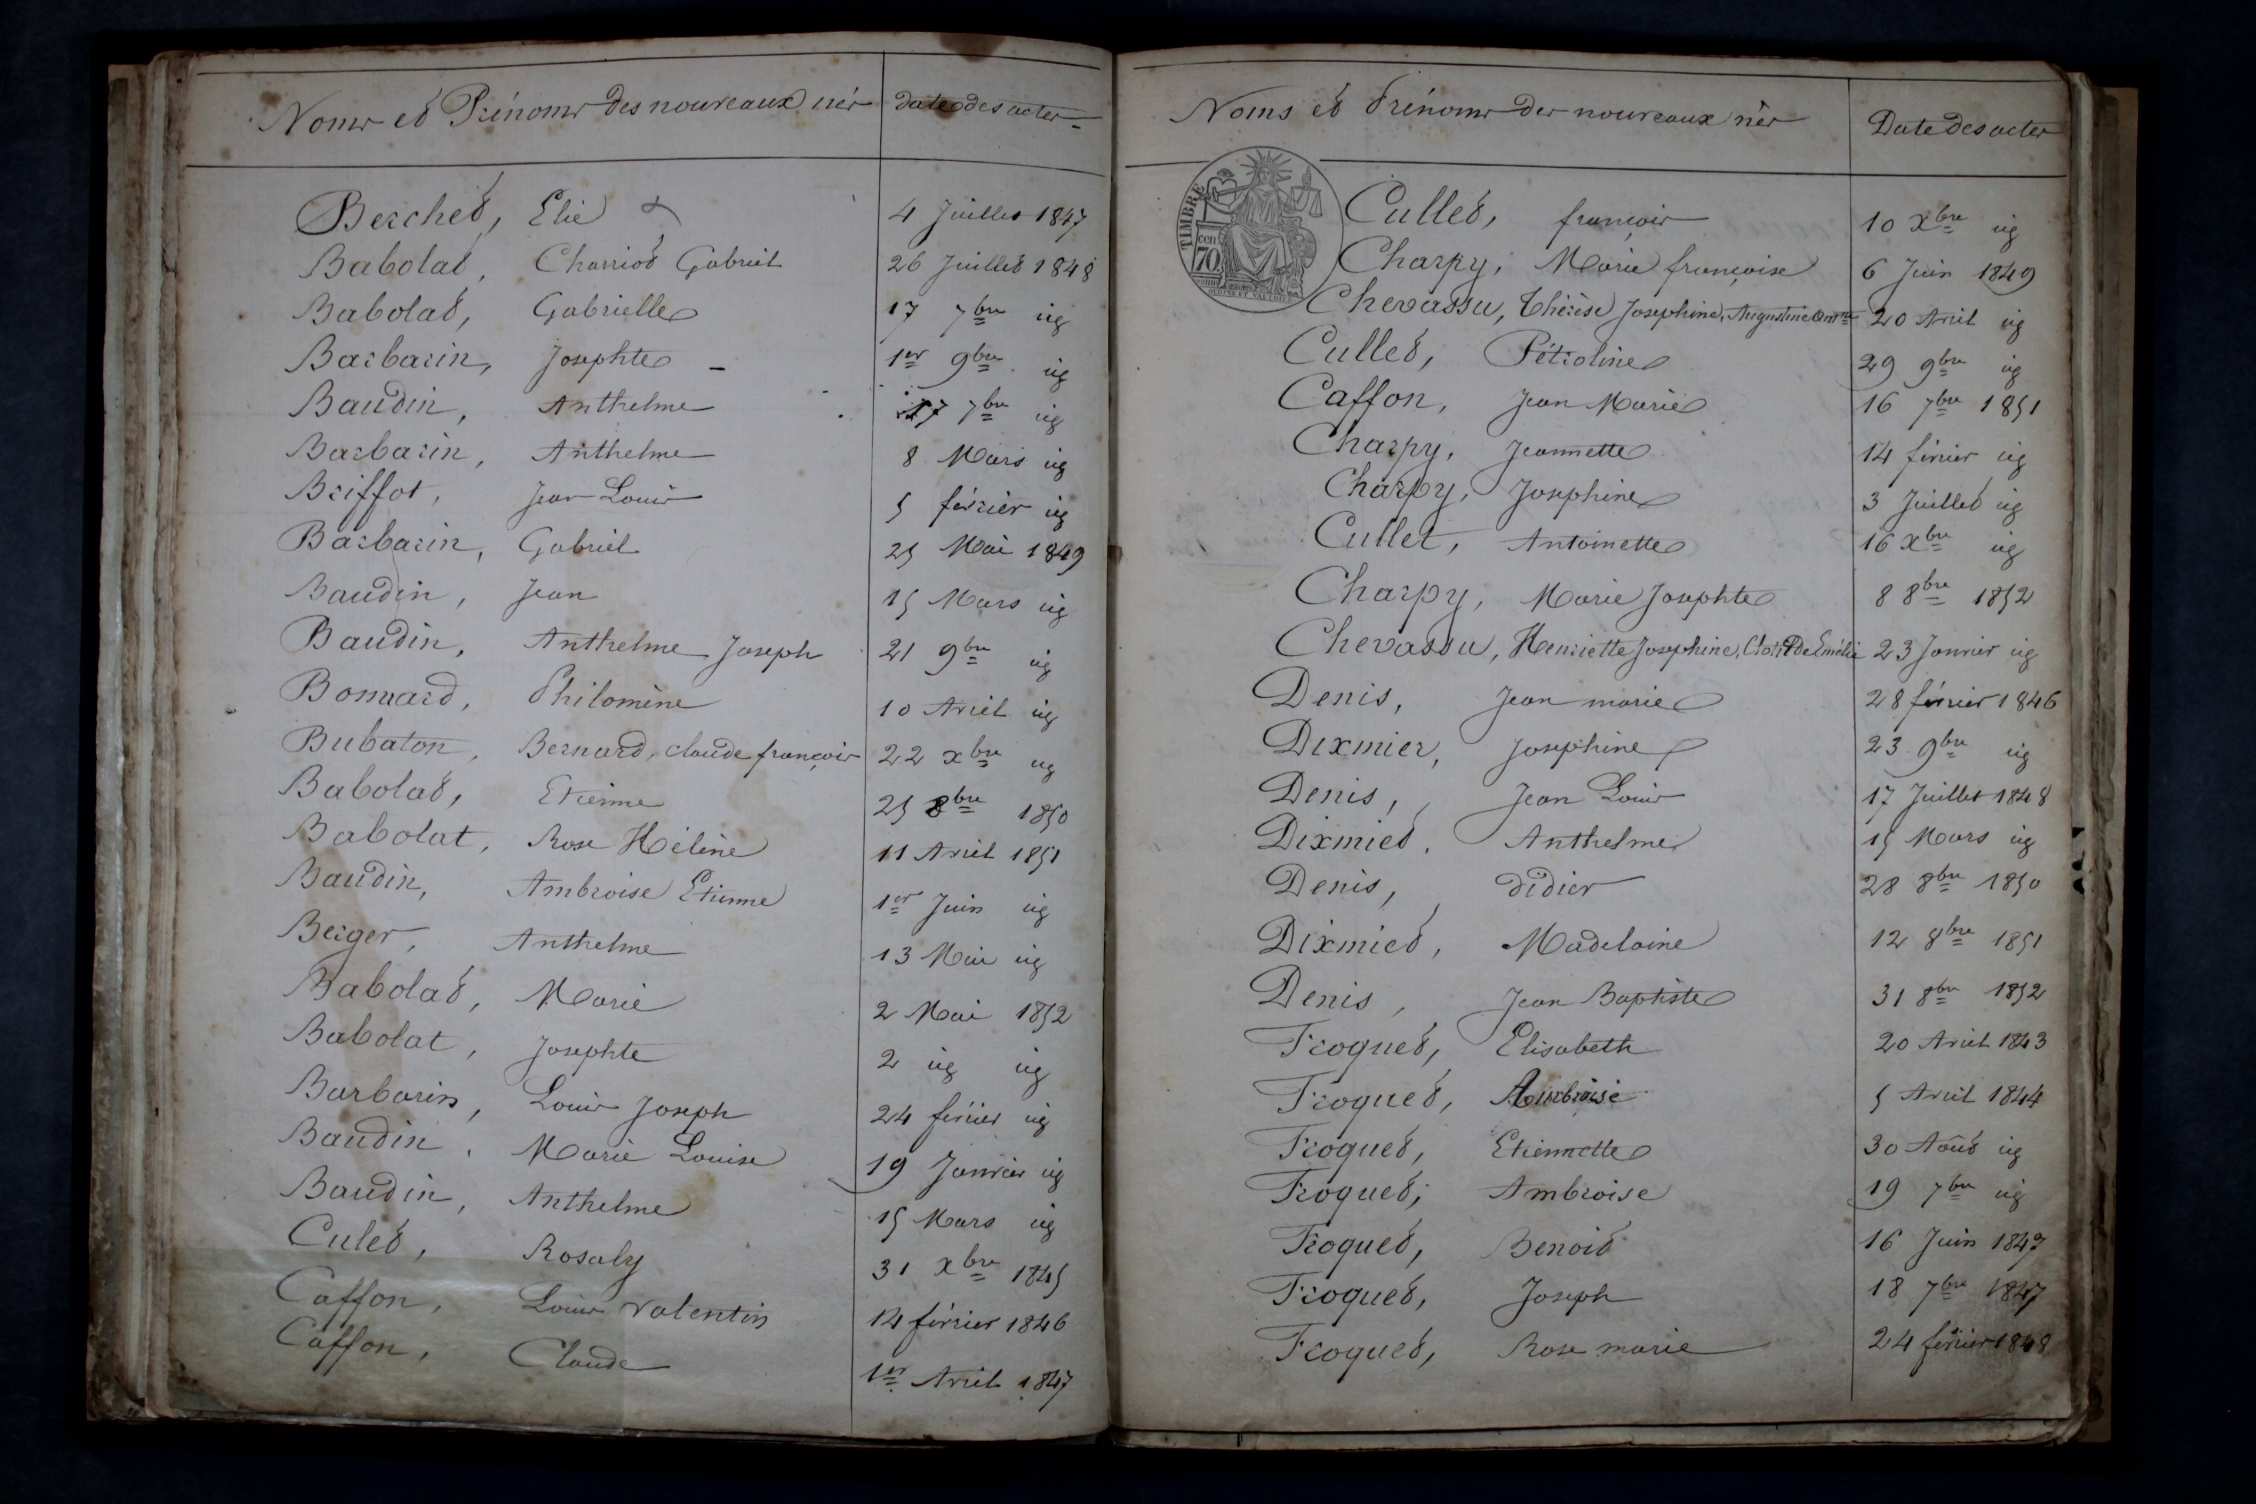 Noms et Prénoms des nouveaux nés Date des actes
Berchet, Elie 4 Juillet 1847
Babolat, Charriot Gabriel 26 Juillet 1848
Babolat, Gabrielle 17 7bre ig
Barbarin, Josephte - 1er 9bre ig
Baudin, Anthelme 17 7bre ig
Barbarin, Anthelme 8 Mars ig
Briffot, Jean Louis 5 février ig
Barbarin, Gabriel 25 Mai 1849
Baudin, Jean 15 Mars ig
Baudin, Anthelme Joseph 21 9bre ig
Bonnard, Philomène 10 Avril ig
Bubaton, Bernard, claude françois 22 xbre ig
Babolat, Etienne 25 8bre 1850
Babolat, Rose Hélène 11 Avril 1851
Baudin, Ambroise Etienne 1er Juin ig
Berger, Anthelme 13 Mai ig
Babolat, Marie 2 Mai 1852
Babolat, Josephte 2 ig ig
Barbarin, Louis Joseph 24 février ig
Baudin, Marie Louise 19 Janvier ig
Baudin, Anthelme 15 Mars ig
Culet, Rosaly 31 xbre 1845
Caffon, Louis valentin 14 février 1846
Caffon, Claude 1er Avril 1847
Noms et Prénoms des nouveaux nés Date des actes
TIMBRE
70
Cullet, françois 10 xbre ig
Charpy, Marie françoise 6 Juin 1849
Chevassu, Thérèse Josephine, Augustine 20 Avril ig
Cullet, Pétroline 29 9bre ig
Caffon, Jean Marie 16 7bre 1851
Charpy, Jeannette 14 février ig
Charpy, Josephine 3 Juillet ig
Cullet, Antoinette 16 xbre ig
Charpy, Marie Josephte 8 8bre 1852
Chevassu, Henriette Josephine, Emélie 23 Janvier ig
Denis, Jean marie 28 février 1846
Dixmier, Josephine 23 9bre ig
Denis, Jean Louis 17 Juillet 1848
Dixmiet, Anthelme 15 Mars ig
Denis, didier 28 8bre 1850
Dixmiet, Madelaine 12 8bre 1851
Denis, Jean Baptiste 31 8bre 1852
Froquet, Elisabeth 20 Avril 1843
Froquet, Ambroise 5 Avril 1844
Froquet, Etiennette 30 Août ig
Froquet, Ambroise 19 7bre ig
Froquet, Benoit 16 Juin 1847
Froquet, Joseph 18 7bre 1847
Froquet, Rose marie 24 février 1848